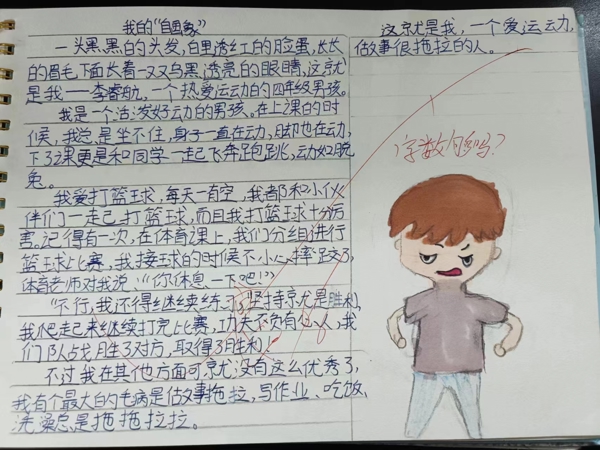 我的“自画象”
一头黑黑的头发,白里透红的脸蛋,长长
的眉毛下面长着一双乌黑透亮的眼睛,这就
是我——李睿航,一个热爱运动的四年级男孩。
我是一个活泼好动的男孩。在上课的时
候,我总是坐不住,身子一直在动,脚也在动,
下了课更是和同学一起飞奔跑跳,动如脱
兔。
我爱打篮球,每天一有空,我都和小伙
伴们一起打篮球,而且我打篮球十分厉
害。记得有一次,在体育课上,我们分组进行
篮球比赛,我接球的时候不小心摔跤了,
体育老师对我说:“你休息一下吧!”
“不行,我还得继续练,坚持就是胜利,
我爬起来继续打完比赛,功夫不负有心人,我
们队战胜了对方,取得了胜利!
不过我在其他方面可就没有这么优秀了,
我有个最大的毛病是做事拖拉,写作业、吃饭、
洗澡总是拖拖拉拉。
这就是我,一个爱运动,
做事很拖拉的人。
字数够吗?